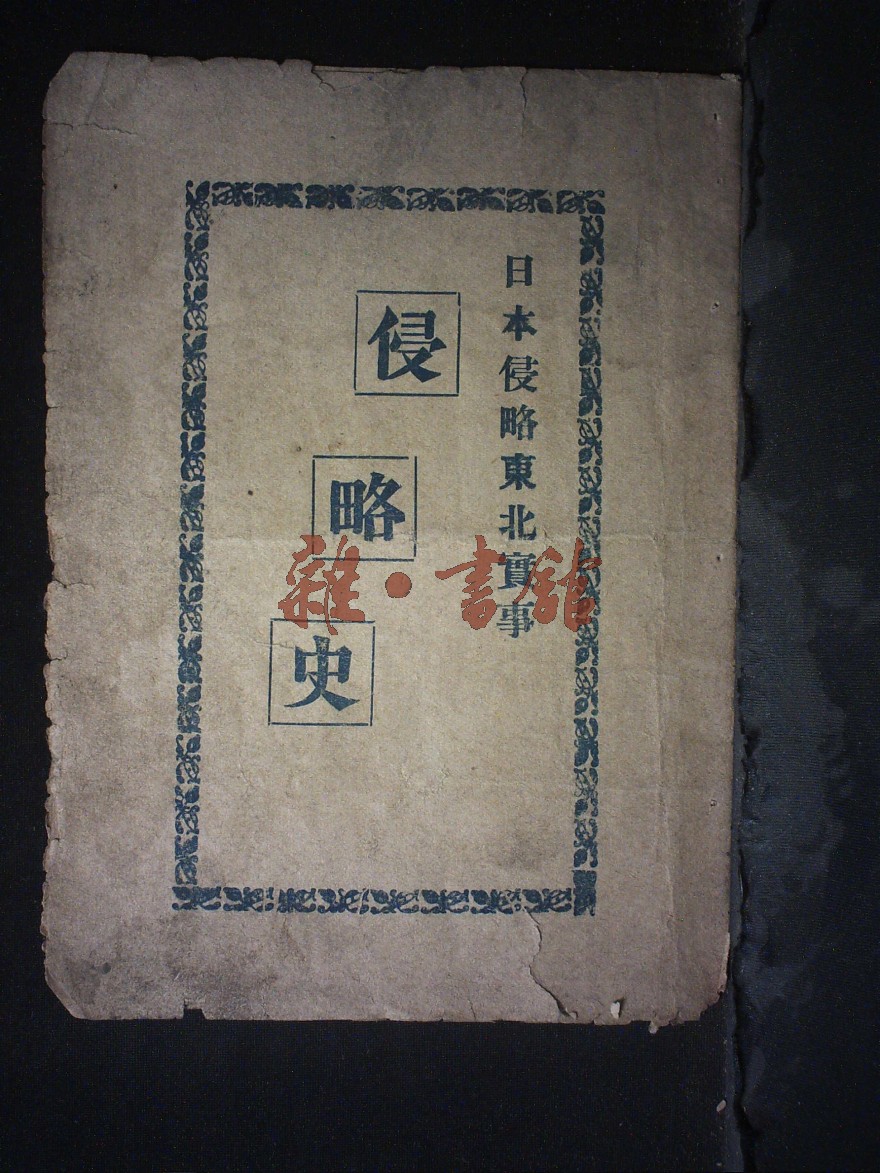 日本侵略東北實事
侵略史
雜·書館